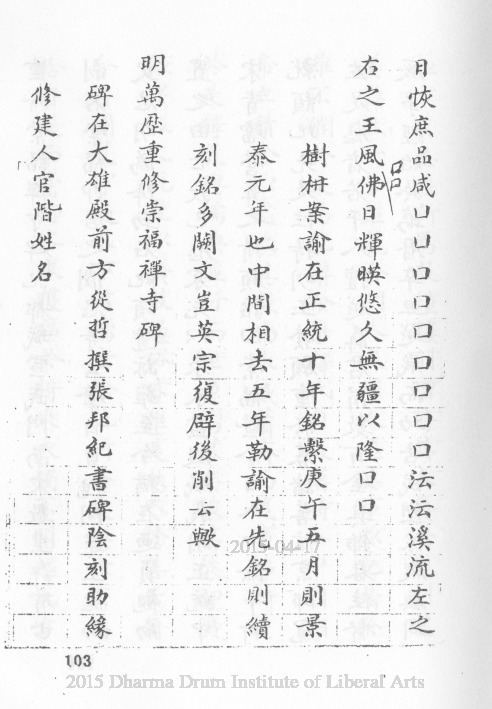 日恢庶品咸凵凵口口口口口口口沄沄溪流左之
右之王風佛口口日輝暎悠久無疆以隆口口
樹枡案諭在正統十年銘繫庚午五月則景
泰元年也中間相去五年勒諭在先銘則續
刻銘多闕文豈英宗復辟後削去歟
明萬歷重修崇福禪寺碑
碑在大雄殿前方從哲撰張邦紀書碑陰刻助緣
修建人官階姓名
2015-04-17
103
2015 Dharma Drum Institute of Liberal Arts